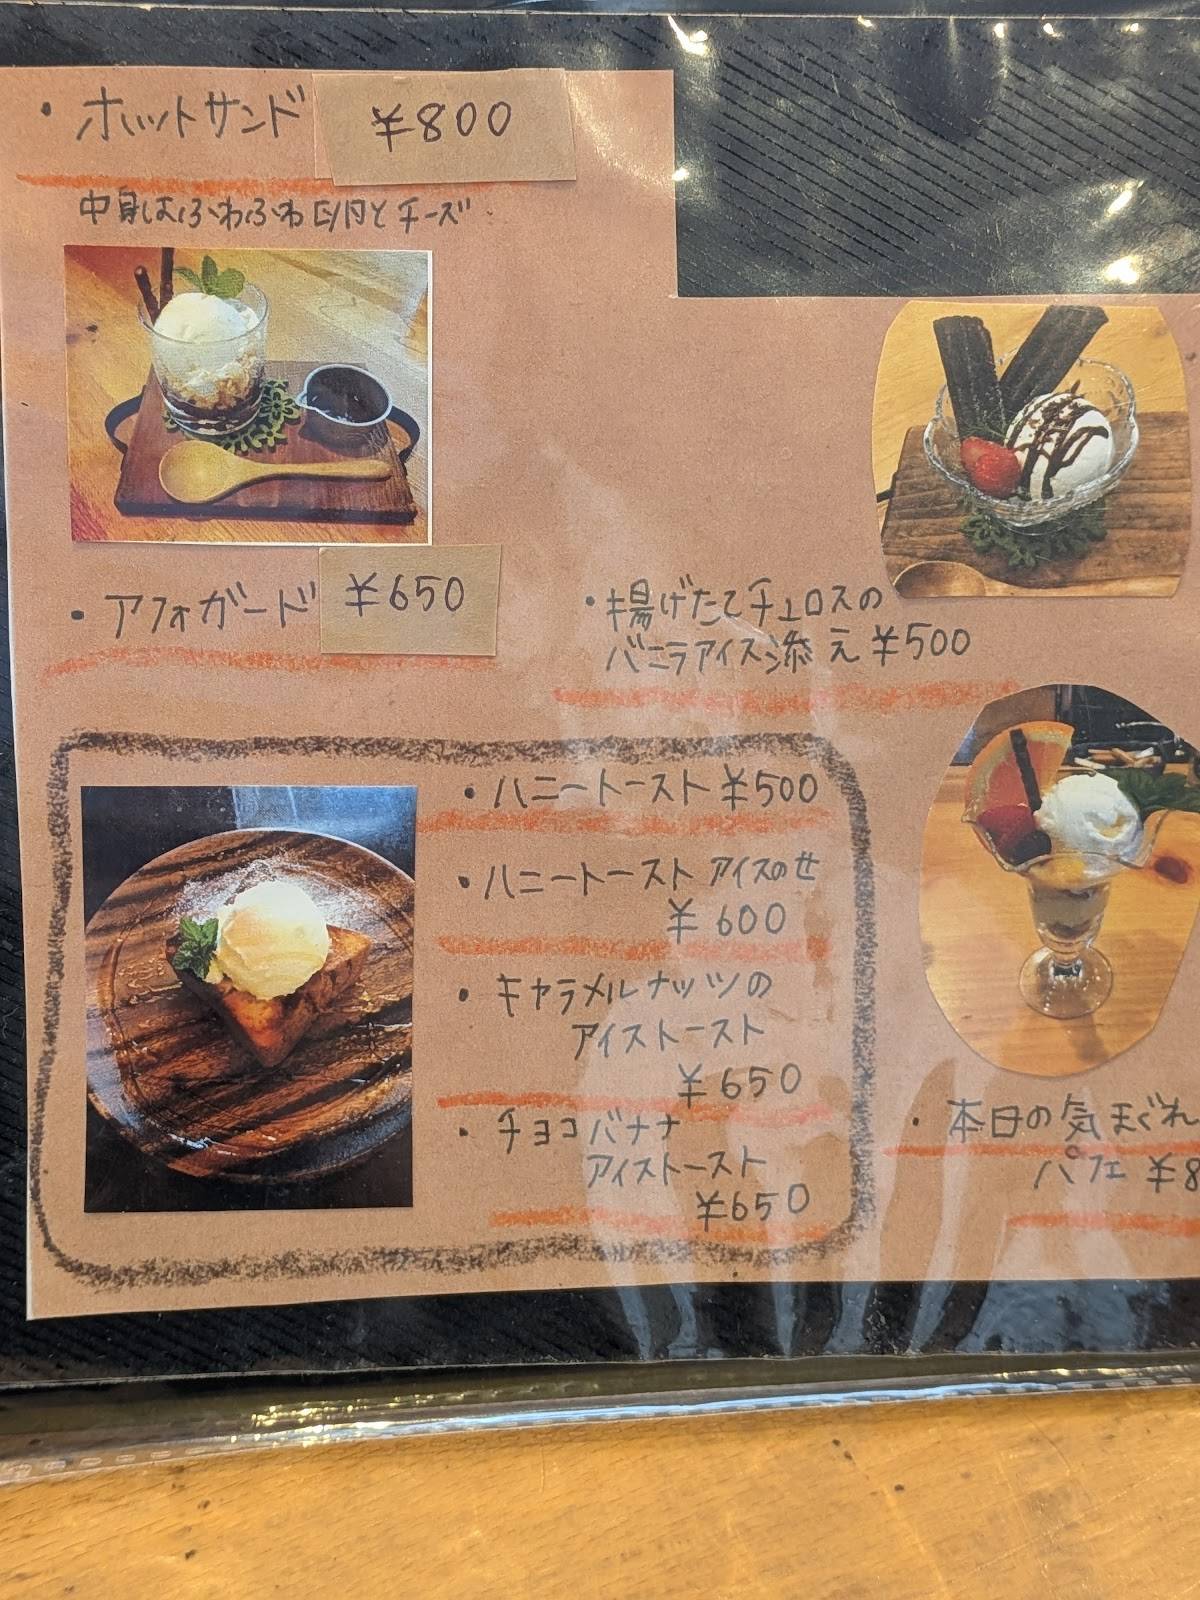 ・ホットサンド ¥800
中身はふわふわ
とチーズ
・アフォガード ¥650
・揚げたてチュロスの
バニラアイス添え ¥500
・ハニートースト ¥500
・ハニートースト アイスのせ
¥600
・キャラメルナッツの
アイストースト
¥650
・チョコバナナ
アイストースト
¥650
・本日の気まぐれ
パフェ ¥8